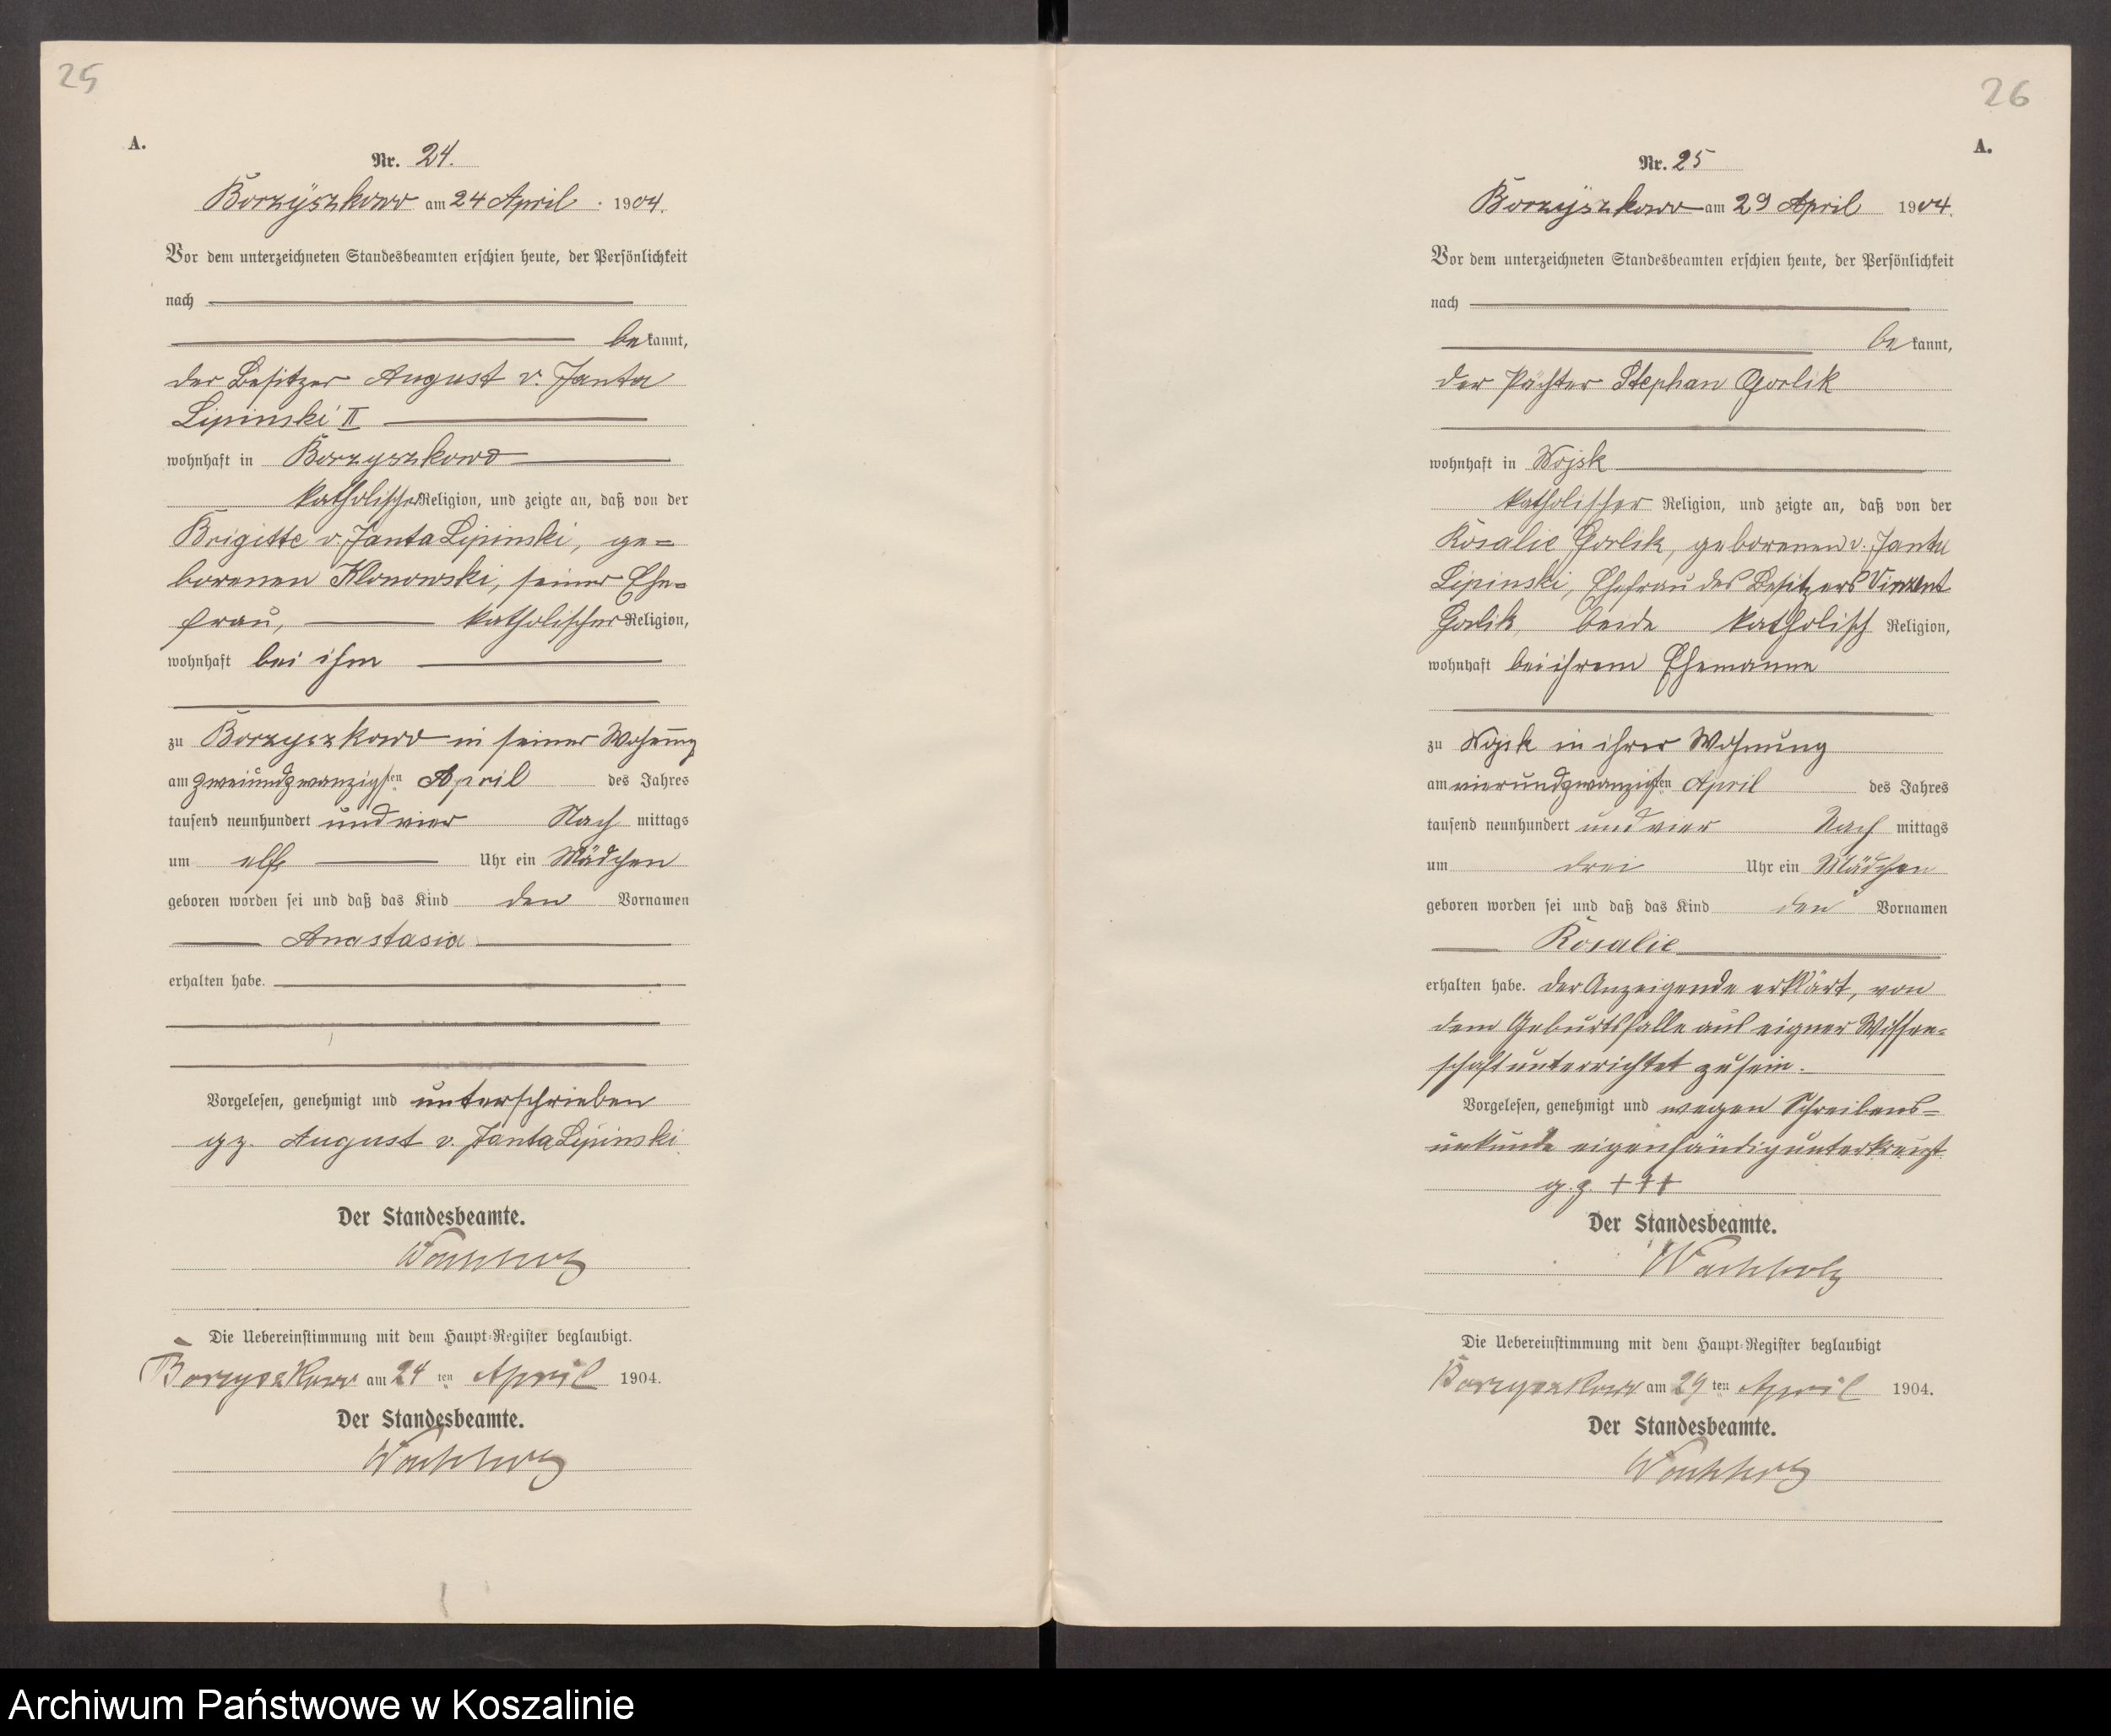 25
A.
Nr. 24.
Borzÿszkowo am 24 April 1904.
Vor dem unterzeichneten Standesbeamten erschien heute, der Persönlichkeit
nach
bekannt,
der Besitzer August v. Janta
Lipinski II
wohnhaft in Borzyszkowo
katholischer Religion, und zeigte an, daß von der
Brigitte v. Janta Lipinski, ge=
borenen Klonowski, seiner Ehe=
frau, katholischer Religion,
wohnhaft bei ihm
zu Borzyszkowo in seiner Wohnung
am zweiundzwanzigsten April des Jahres
tausend neunhundert und vier Nach mittags
um elf Uhr ein Mädchen
geboren worden sei und daß das Kind den Vornamen
Anastasia
erhalten habe.
Vorgelesen, genehmigt und unterschrieben
gz. August v. Janta Lipinski.
Der Standesbeamte.
Wachholz
Die Uebereinstimmung mit dem Haupt-Register beglaubigt.
Borzyszkowo am 24 ten April 1904.
Der Standesbeamte.
Wachholz
26
A.
Nr. 25
Borzÿszkowo am 29 April 1904.
Vor dem unterzeichneten Standesbeamten erschien heute, der Persönlichkeit
nach
bekannt,
der Pächter Stephan Gorlik
wohnhaft in Wojsk
katholischer Religion, und zeigte an, daß von der
Rosalie Gorlik, geborenen v. Janta
Lipinski, Ehefrau des Besitzers Vinzent
Gorlik beide katholisch Religion,
wohnhaft bei ihrem Ehemanne
zu Wojsk in ihrer Wohnung
am vierundzwanzigsten April des Jahres
tausend neunhundert und vier Nach mittags
um drei Uhr ein Mädchen
geboren worden sei und daß das Kind den Vornamen
Rosalie
erhalten habe. Der Anzeigende erklärt, von
dem Geburtsfalle aus eigner Wissen=
schaft unterrichtet zu sein.
Vorgelesen, genehmigt und wegen Schreibens=
unkunde eigenhändig unterkreuzt
g.z. +++
Der Standesbeamte.
Wachholz
Die Uebereinstimmung mit dem Haupt-Register beglaubigt
Borzyszkowo am 29 ten April 1904.
Der Standesbeamte.
Wachholz
Archiwum Państwowe w Koszalinie